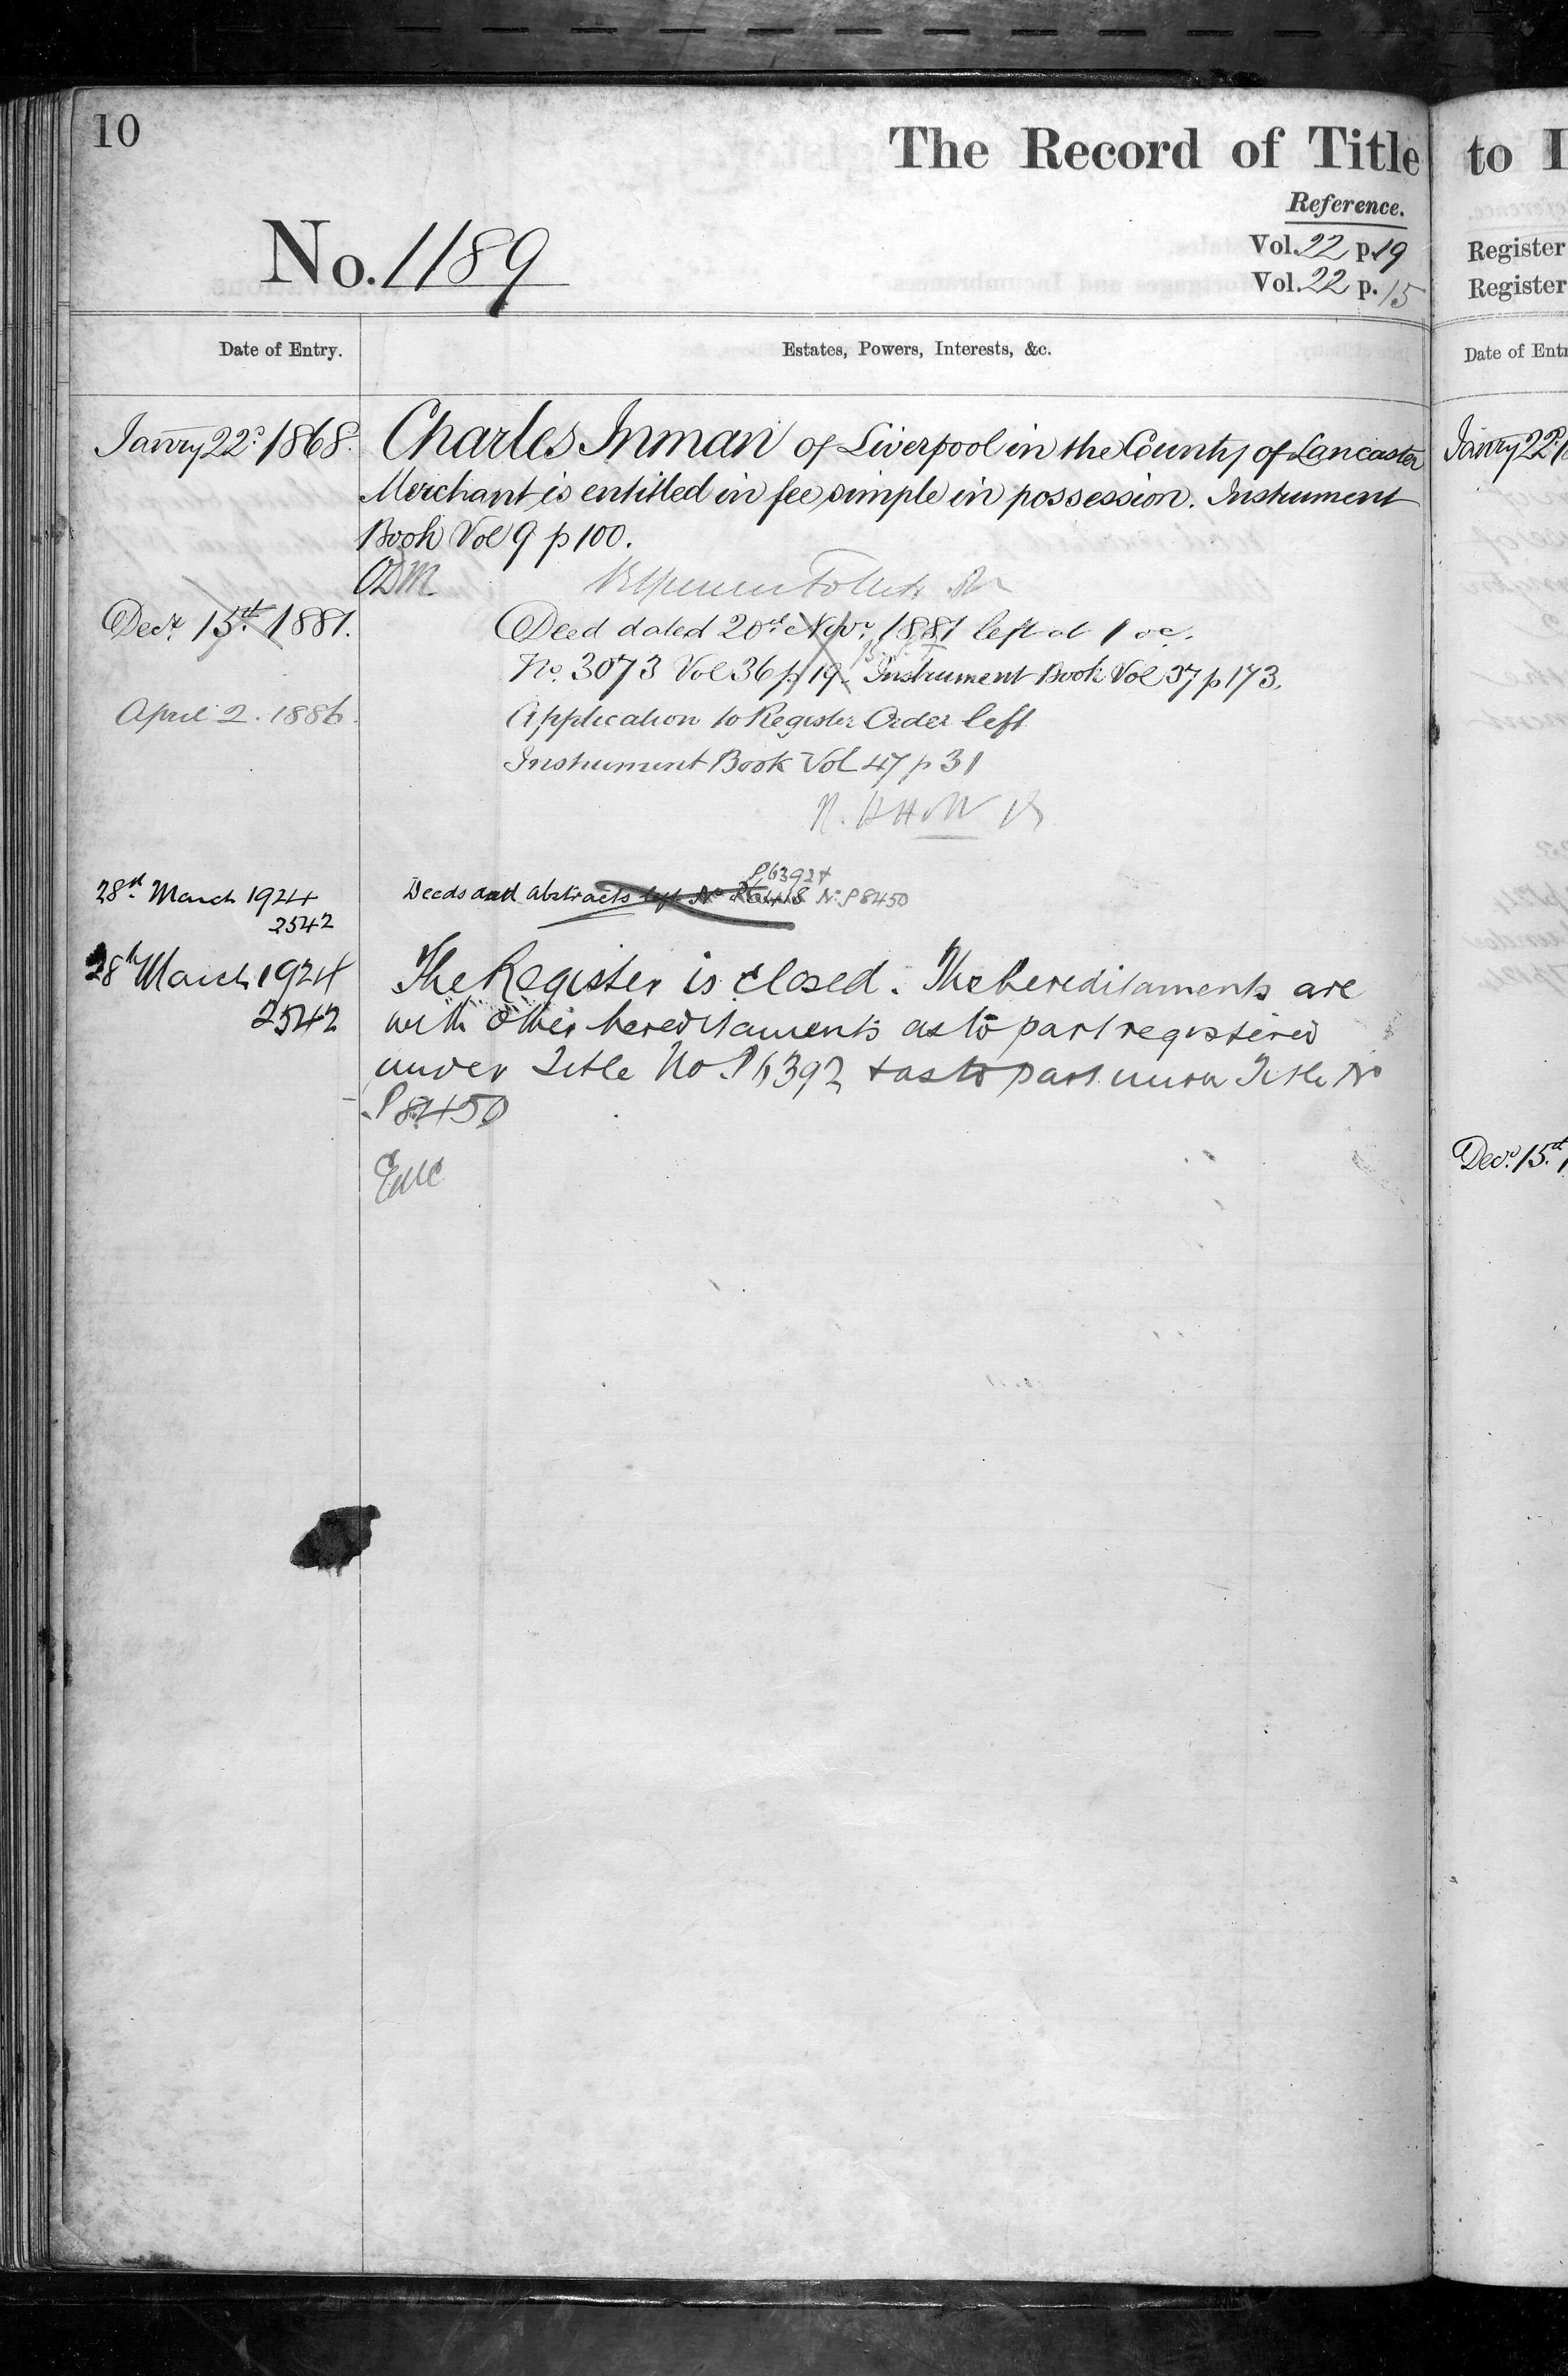 10
The Record of Title
Reference.
No. 1189
Vol. 22 p. 19
Vol. 22 p. 15
Date of Entry.
Estates, Powers, Interests, &c.
Janry 22d 1868.
Charles Inman of Liverpool in the County of Lancaster
Merchant is entitled in fee simple in possession. Instrument
Book Vol 9 p 100.
ODM
Decr 15th 1881.
Deed dated 20th Novr 1881 left at 1 oc.
No. 3073 Vol 36 p. 19. Instrument Book Vol 37 p 173.
April 2. 1886.
Application to Register Order left
Instrument Book Vol 47 p 31
P6392+
28th March 1924
Deeds and abstracts left No No P8450
2542
28th March 1924
The Register is closed. The hereditaments are
2542
with other hereditaments as to part registered
under Title No P6392 + as to part under Title No
P8450
to
Register
Register
Date of Ent
Janry 22d
Decr 15th